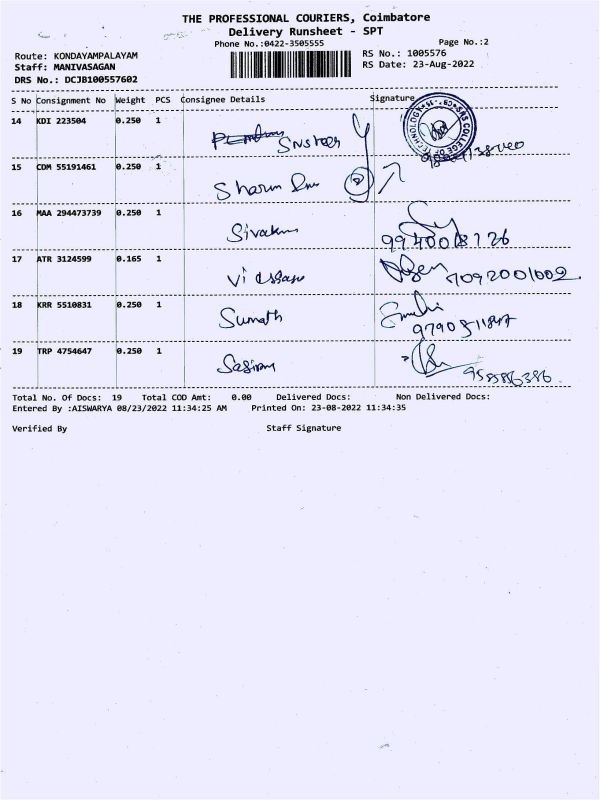 THE PROFESSIONAL COURIERS, Coimbatore
Delivery Runsheet - SPT
Phone No.:0422-3505555 Page No.:2
Route: KONDAYAMPALAYAM RS No.: 1005576
Staff: MANIVASAGAN RS Date: 23-Aug-2022
DRS No.: DCJB100557602
S No Consignment No Weight PCS Consignee Details Signature
14 KDI 223504 0.250 1
15 COM 55191461 0.250 1
Sharun
16 MAA 294473739 0.250 1
Sivakum 9940008126
17 ATR 3124599 0.165 1
7092001002
18 KRR 5510831 0.250 1
Sumath
19 TRP 4754647 0.250 1
Sasirom
Total No. Of Docs: 19 Total COD Amt: 0.00 Delivered Docs: Non Delivered Docs:
Entered By :AISWARYA 08/23/2022 11:34:25 AM Printed On: 23-08-2022 11:34:35
Verified By Staff Signature